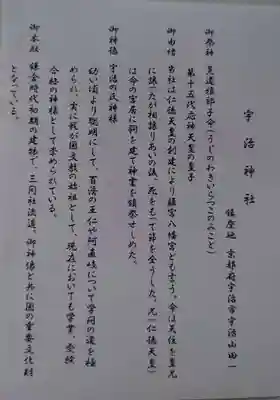 宇治神社
鎮座地 京都府宇治市宇治山田一
御祭神 菟道稚郎子命(うじのわきいらつこのみこと)
第十五代応神天皇の皇子
御由緒
当社は仁徳天皇の創建により離宮八幡宮とも云う。命は天位を皇兄
に譲ったが相譲りあいの後、死をもって節を全うした。兄(仁徳天皇)
は命の宮居に祠を建て神霊を鎮祭せしめた。
御神徳 宇治の氏神様
幼い頃より聡明にして、百済の王仁や阿直岐について学問の道を極
められ、実に我が国文教の始祖として、現在においても学業、受験
合格の神様として崇められている。
御本殿 鎌倉時代初期の建物で、三間社流造、御神像と共に国の重要文化財
となっている。